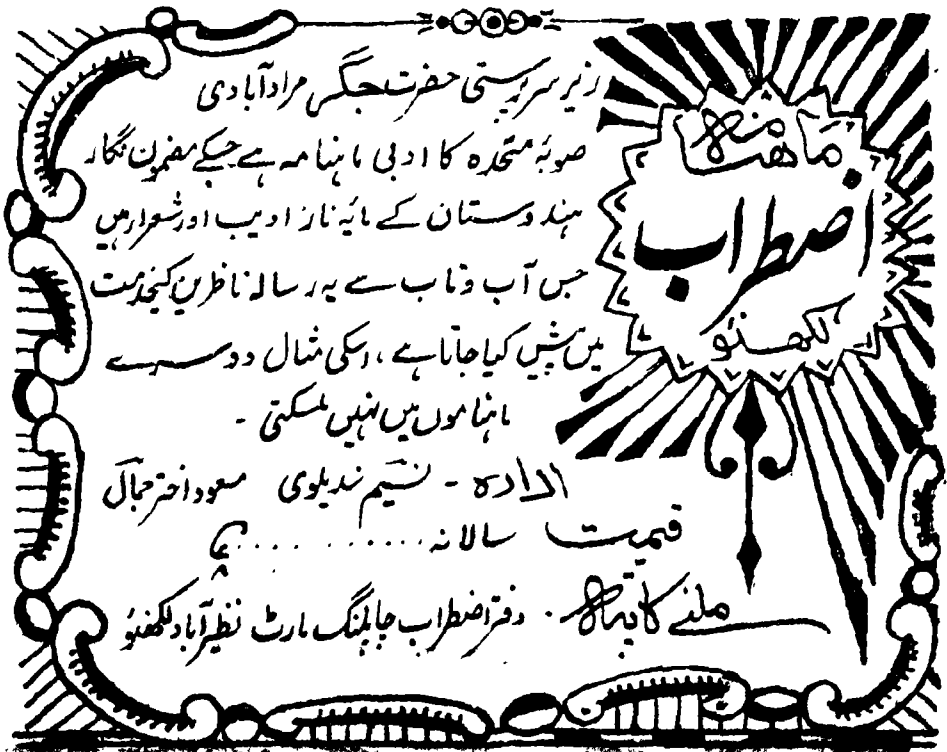 ماهنامہ
اضطراب
لکھنؤ
زیر سرپرستی حضرت جگر مرادآبادی
صوبۂ متحدہ کا ادبی ماہنامہ ہے جسکے مضمون نگار
ہندوستان کے مایۂ ناز ادیب اور شعراء ہیں
جس آب و تاب سے یہ رسالہ ناظرین کیخدمت
میں پیش کیا جاتا ہے، اسکی مثال دوسرے
ماہناموں میں نہیں ملسکتی -
الادارہ - نسیم ندیلوی مسعود اختر جمال
قیمت سالانہ ..........
ملنے کا پتہ . دفتر اضطراب چاپلنگ مارٹ نظیرآباد لکھنؤ